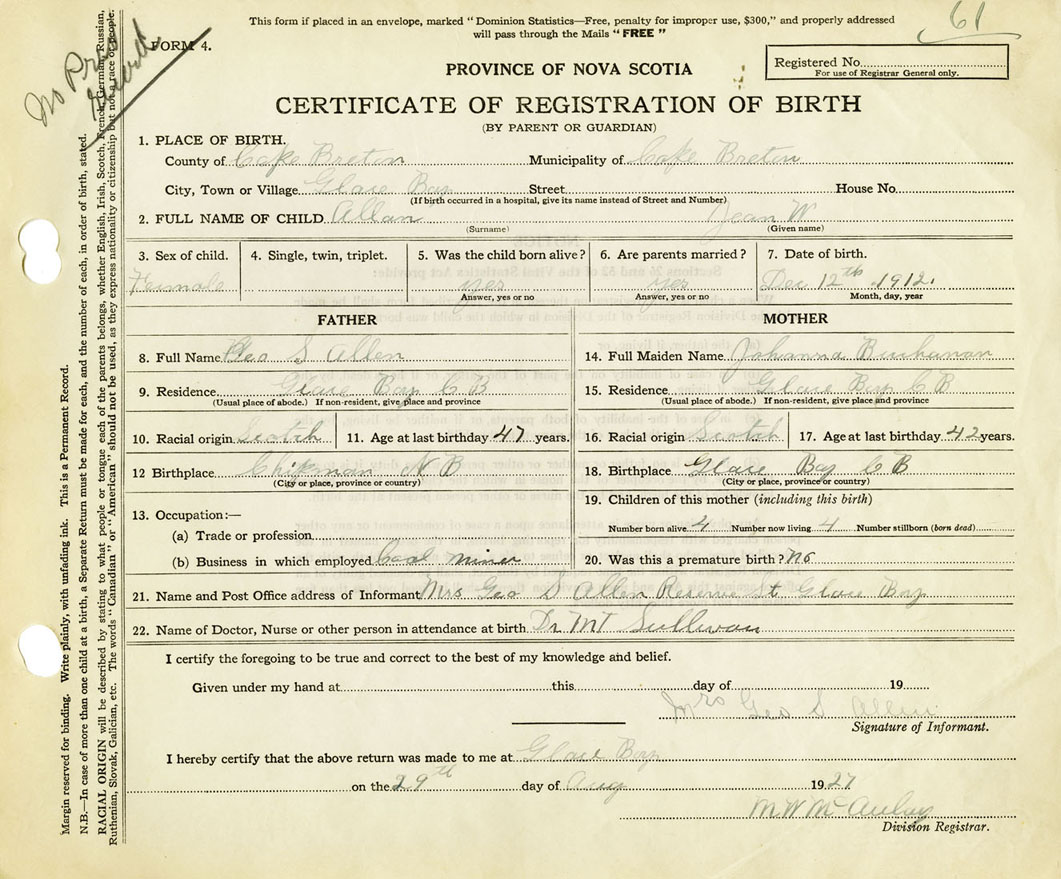 This form if placed in an envelope, marked " Dominion Statistics—Free, penalty for improper use, $300," and properly addressed
will pass through the Mails " FREE "
61
FORM 4.
No
PROVINCE OF NOVA SCOTIA
Registered No.
For use of Registrar General only.
CERTIFICATE OF REGISTRATION OF BIRTH
(BY PARENT OR GUARDIAN)
1. PLACE OF BIRTH.
County of Cape Breton Municipality of Cape Breton
City, Town or Village Glace Bay Street House No.
(If birth occurred in a hospital, give its name instead of Street and Number)
2. FULL NAME OF CHILD Allan Jean W
(Surname) (Given name)
3. Sex of child. 4. Single, twin, triplet. 5. Was the child born alive? 6. Are parents married? 7. Date of birth.
Female yes yes Dec 12th 1912.
Answer, yes or no Answer, yes or no Month, day, year
FATHER MOTHER
8. Full Name Geo S Allen 14. Full Maiden Name Johanna Buchanan
9. Residence Glace Bay C B 15. Residence Glace Bay C B
(Usual place of abode.) If non-resident, give place and province (Usual place of abode.) If non-resident, give place and province
10. Racial origin Scotch 11. Age at last birthday 47 years. 16. Racial origin Scotch 17. Age at last birthday 42 years.
12 Birthplace Chipman N B 18. Birthplace Glace Bay C B
(City or place, province or country) (City or place, province or country)
19. Children of this mother (including this birth)
13. Occupation:— Number born alive 4 Number now living 4 Number stillborn (born dead)
(a) Trade or profession
(b) Business in which employed Coal miner 20. Was this a premature birth? No
21. Name and Post Office address of Informant Mrs. Geo S Allen Reserve St Glace Bay
22. Name of Doctor, Nurse or other person in attendance at birth Dr MT Sullivan
I certify the foregoing to be true and correct to the best of my knowledge and belief.
Given under my hand at this day of 19
Mrs Geo S Allen
Signature of Informant.
I hereby certify that the above return was made to me at Glace Bay
on the 29th day of Aug 1927
M W McAulay
Division Registrar.
Margin reserved for binding. Write plainly, with unfading ink. This is a Permanent Record.
N.B.—In case of more than one child at a birth, a Separate Return must be made for each, and the number of each, in order of birth, stated.
RACIAL ORIGIN will be described by stating to what people or tongue each of the parents belongs, whether English, Irish, Scotch, French, German, Russian,
Ruthenian, Slovak, Galician, etc. The words " Canadian " or " American " should not be used, as they express nationality or citizenship but not a race of people.